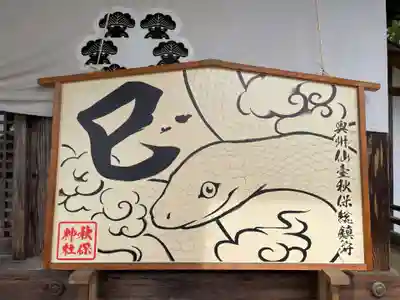 巳
奥州仙臺秋保総鎮守
秋保
神社